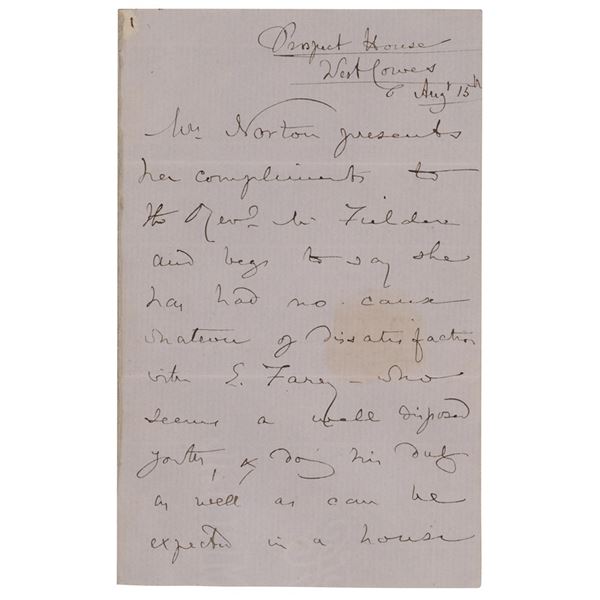 1
Prospect House
West Cowes
Augt 15th
Mrs Norton presents
her compliments to
the Revd Mr Fieldere
and begs to say she
has had no cause
whatever of dissatisfaction
with E. Farey - who
seems a well disposed
youth, & doing his duty
as well as can be
expected in a house